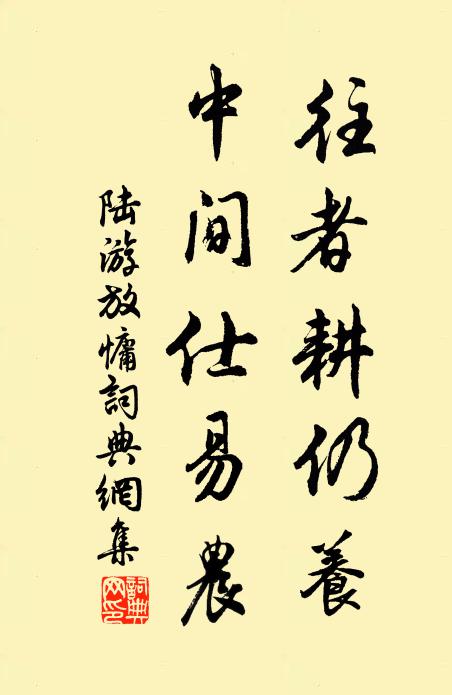 往者耕仍養
中間仕易農
陆游放慵詞典網集
詞典網印